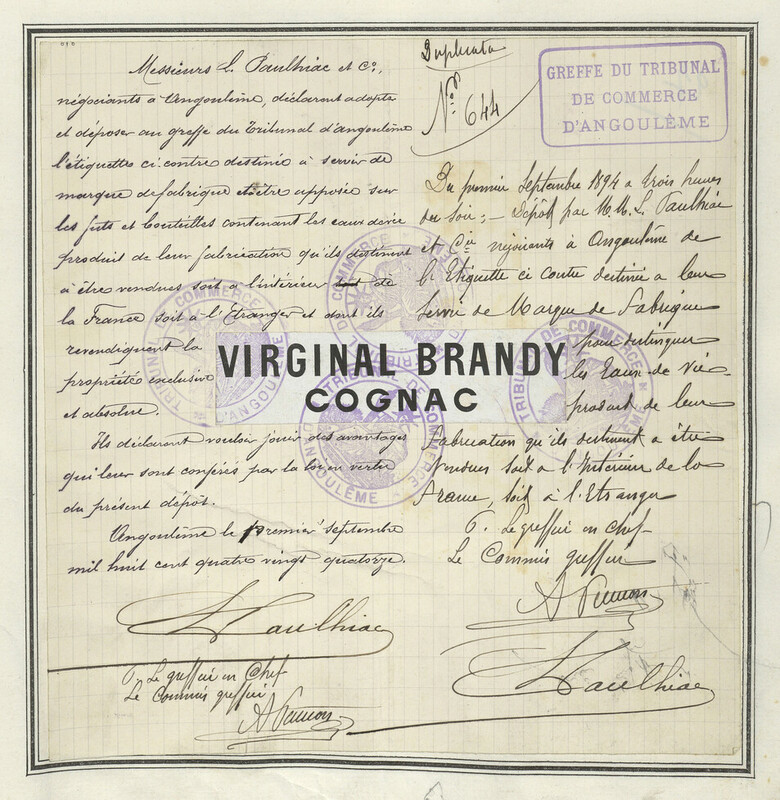 Messieurs L. Paulhiac et Cº,
négociants à Angoulême, déclarent adopter
et déposer au greffe du Tribunal d'angoulême
l'étiquettes ci-contre destinée à servir de
marque de fabrique et être apposée sur
les futs et bouteilles contenant les eaux de vie
produit de leur fabrication qu'ils destinent
à être vendues soit à l'intérieur de
la France soit à l'Etranger et dont ils
revendiquent la
propriété exclusive
et absolue.
Ils déclarent vouloir jouir des avantages
qui leur sont conférés par la loi en vertu
du présent dépôt.
Angoulême le premier septembre
mil huit cent quatre vingt quatorze.
L Paulhiac
P. Le greffier en Chef
Le Commis greffier
Duplicata
Nº 644
GREFFE DU TRIBUNAL
DE COMMERCE
D'ANGOULÊME
Du premier Septembre 1894 à trois heures
du soir; - Dépôt par M.M. L. Paulhiac
et Cie négociants à Angoulême de
l'Etiquette ci contre destinée a leur
servir de Marque de Fabrique
pour distinguer
les Eaux-de-vie
produit de leur
Fabrication qu'ils destinent a être
Vendues soit a l'Intérieur de la
France, soit à l'Etranger
P. Le greffier en Chef
Le Commis greffier
L Paulhiac
VIRGINAL BRANDY
COGNAC
TRIBUNAL DE COMMERCE D'ANGOULÊME
TRIBUNAL DE COMMERCE
TRIBUNAL DE COMMERCE D'ANGOULÊME
TRIBUNAL DE COMMERCE